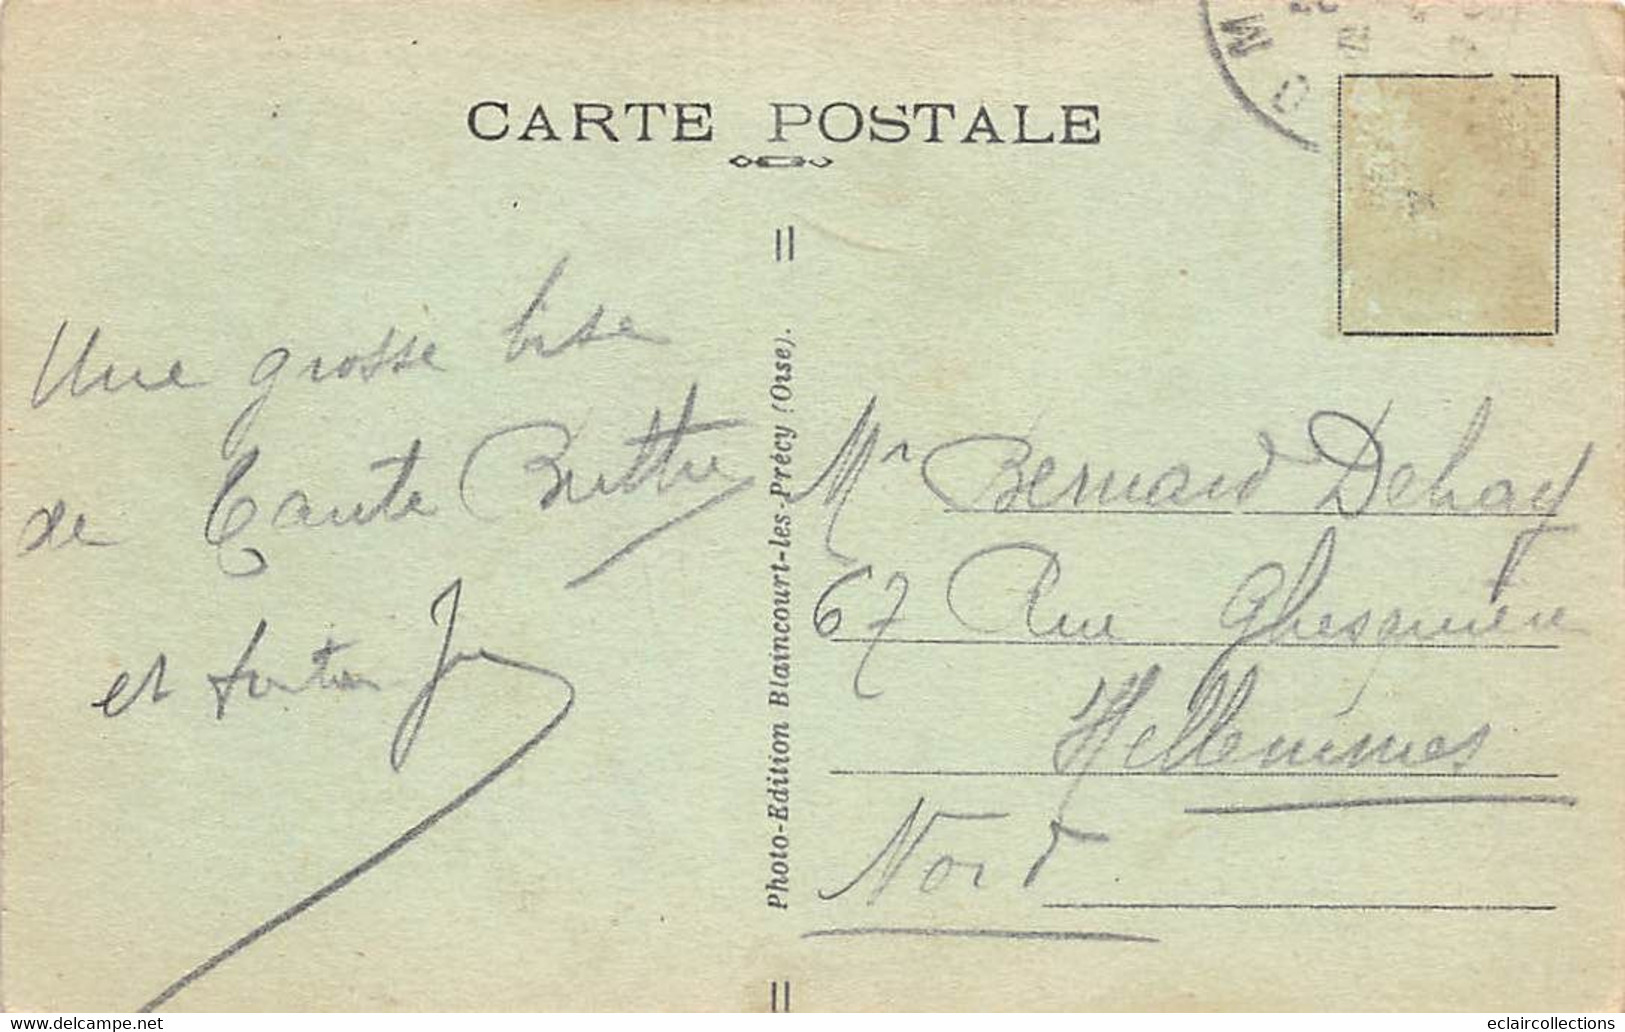 CARTE POSTALE
Une grosse bise
de Tante Berthe
et
Photo-Edition Blaincourt-les-Précy (Oise).
Mr Bernard Dehay
67 Rue Ghesquière
Hellemmes
Nord
eclaircollections